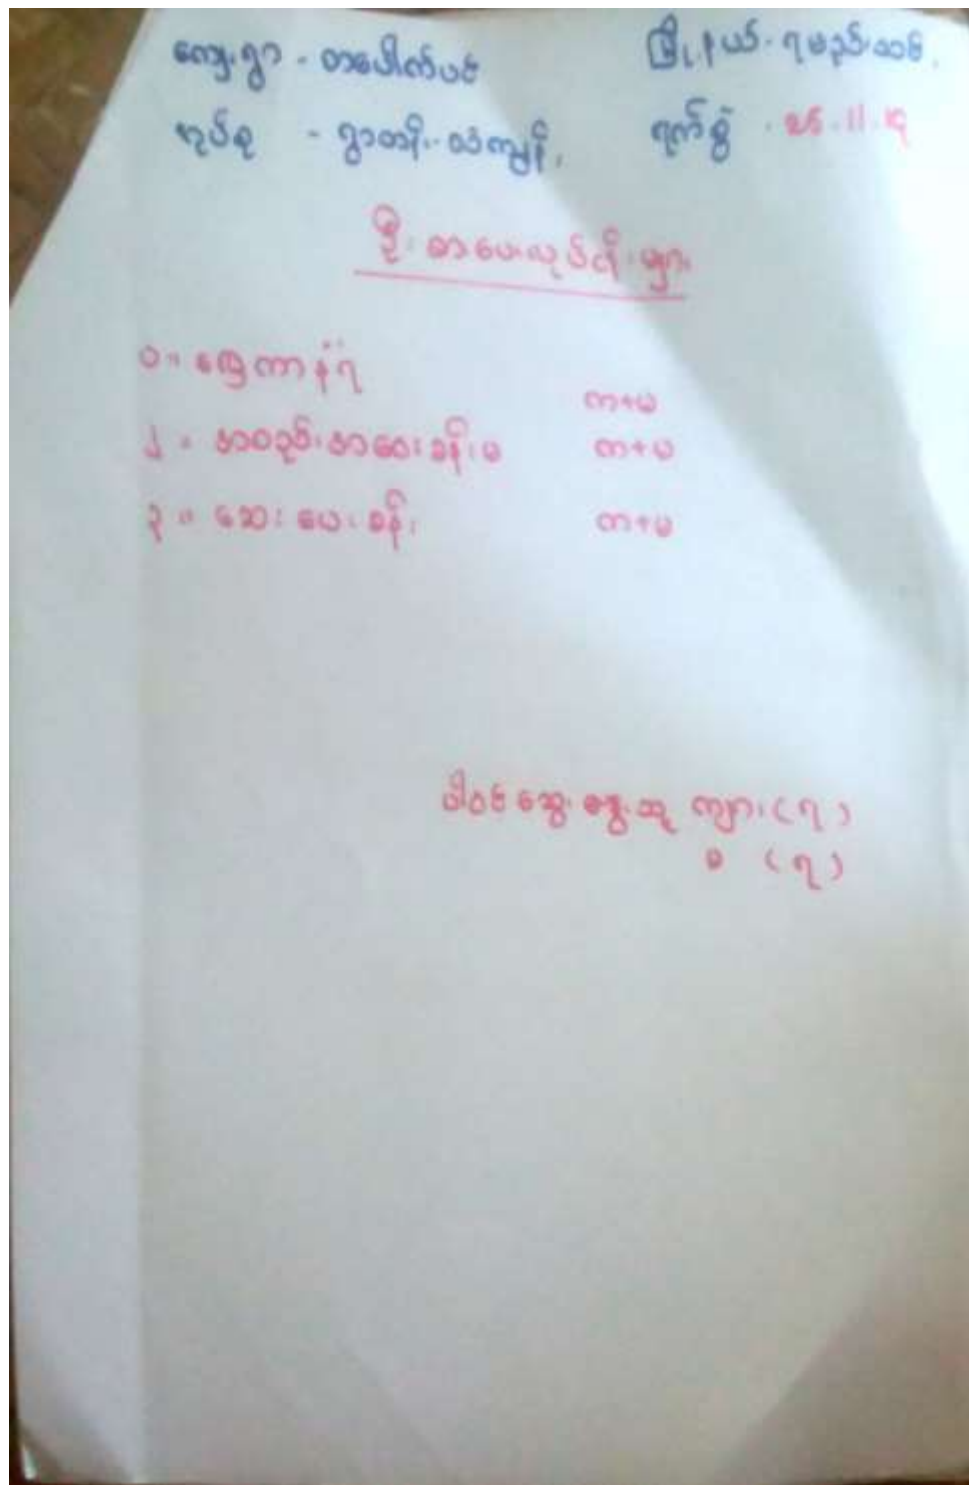 ကျေးရွာ - တပေါက်ပင် မြို့နယ် - ရမည်းသင်း
အုပ်စု - ရွာတန်း-သဲကျွန်း ရက်စွဲ - ၁၁
ဦးစားပေးလုပ်ငန်းများ
၁။ ရွှေကာနံရံ က+မ
၂။ အစည်းအဝေးခန်းမ က+မ
၃။ ဆေးပေးခန်း က+မ
ပါဝင်ဆွေးနွေးသူ ကျား (၇)
မ (၇)